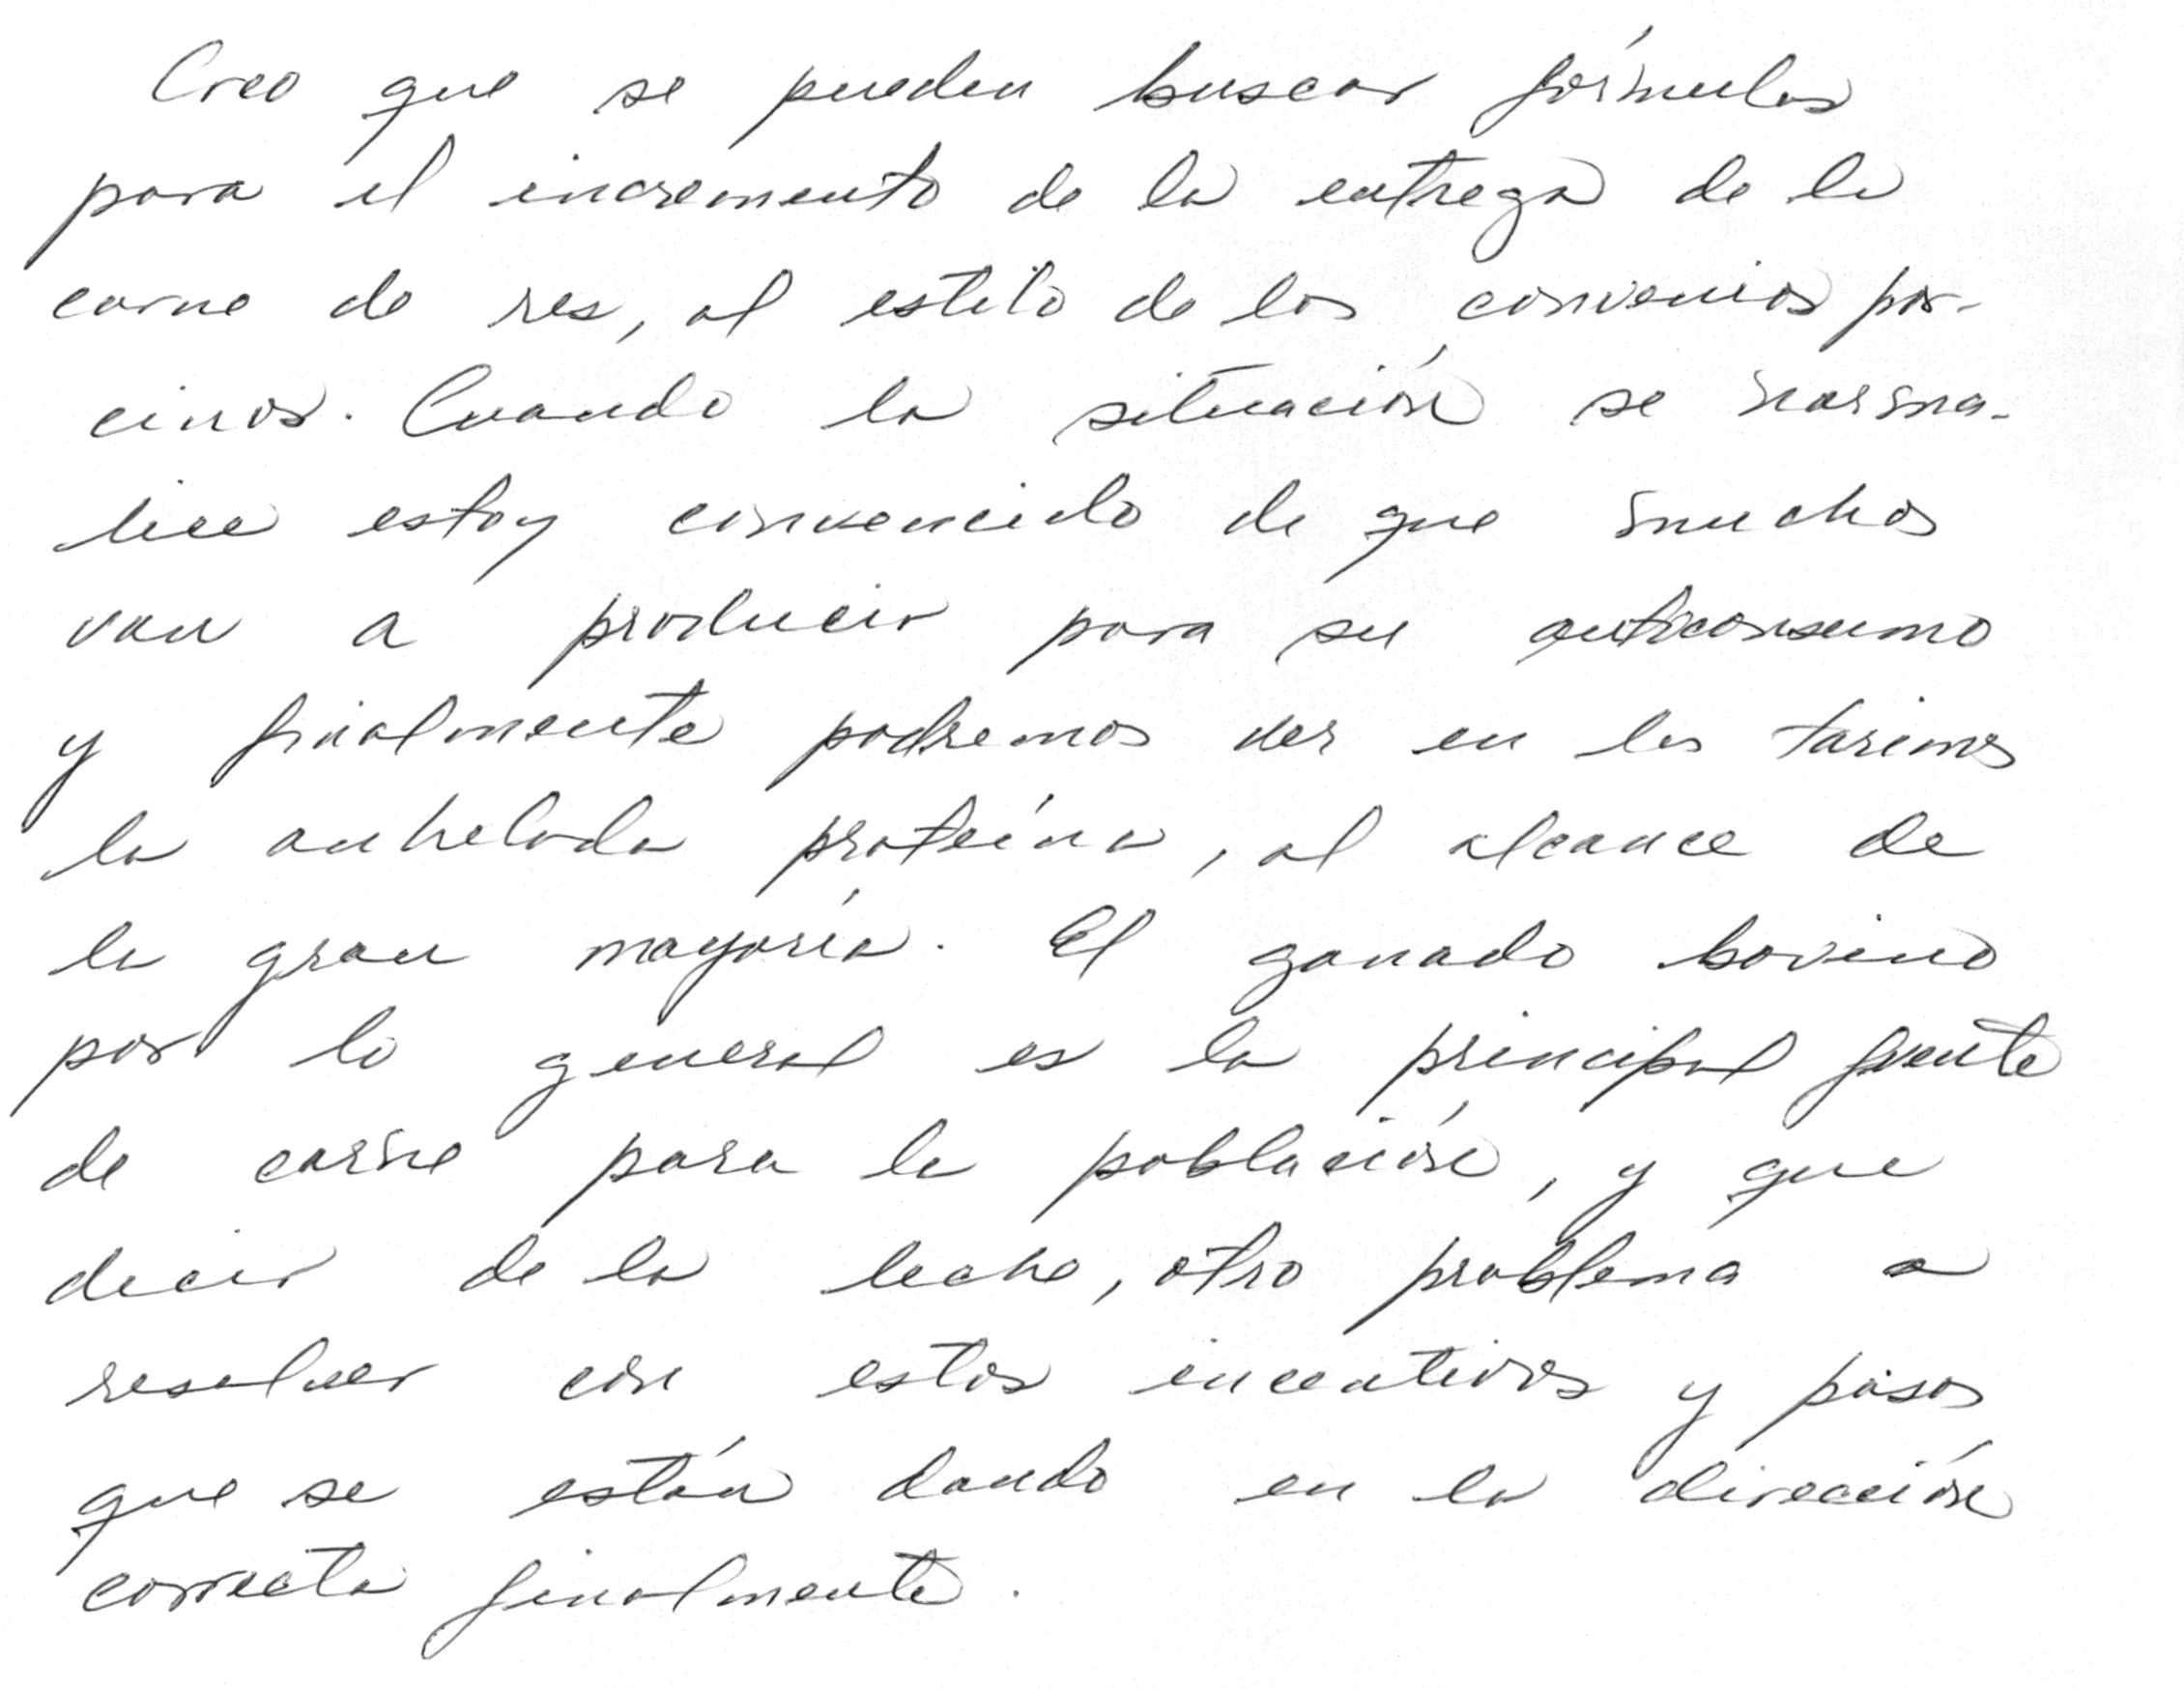 Creo que se pueden buscar fórmulas
para el incremento de la entrega de la
carne de res, al estilo de los convenios por-
cinos. Cuando la situación se norma-
lice estoy convencido de que muchos
van a producir para su autoconsumo
y finalmente podremos ver en las tarimas
la anhelada proteína, al alcance de
la gran mayoría. El ganado bovino
por lo general es la principal fuente
de carne para la población, y que
decir de la leche, otro problema a
resolver con estos incentivos y pasos
que se están dando en la dirección
correcta finalmente.